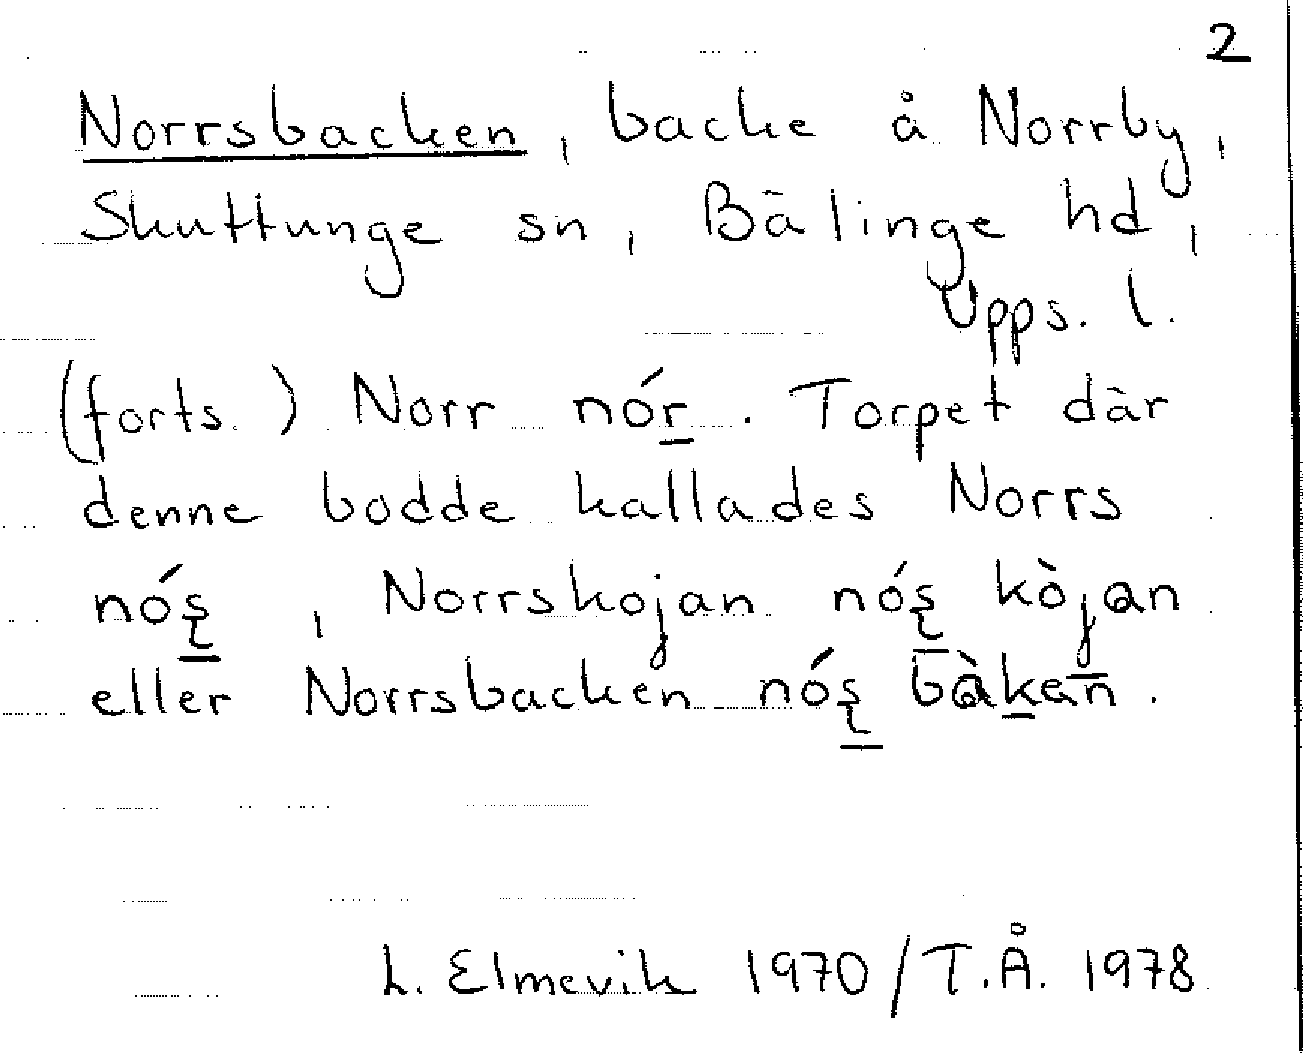 2
Norrsbacken, backe å Norrby,
Skuttunge sn, Bälinge hd,
Upps. l.
(forts.) Norr nór̲. Torpet där
denne bodde kallades Norrs
nóʂ̲, Norrskojan nóʂ̲ kòjan̲
eller Norrsbacken nóʂ̲ bàk̲en̄.
L. Elmevik 1970/T.Å. 1978